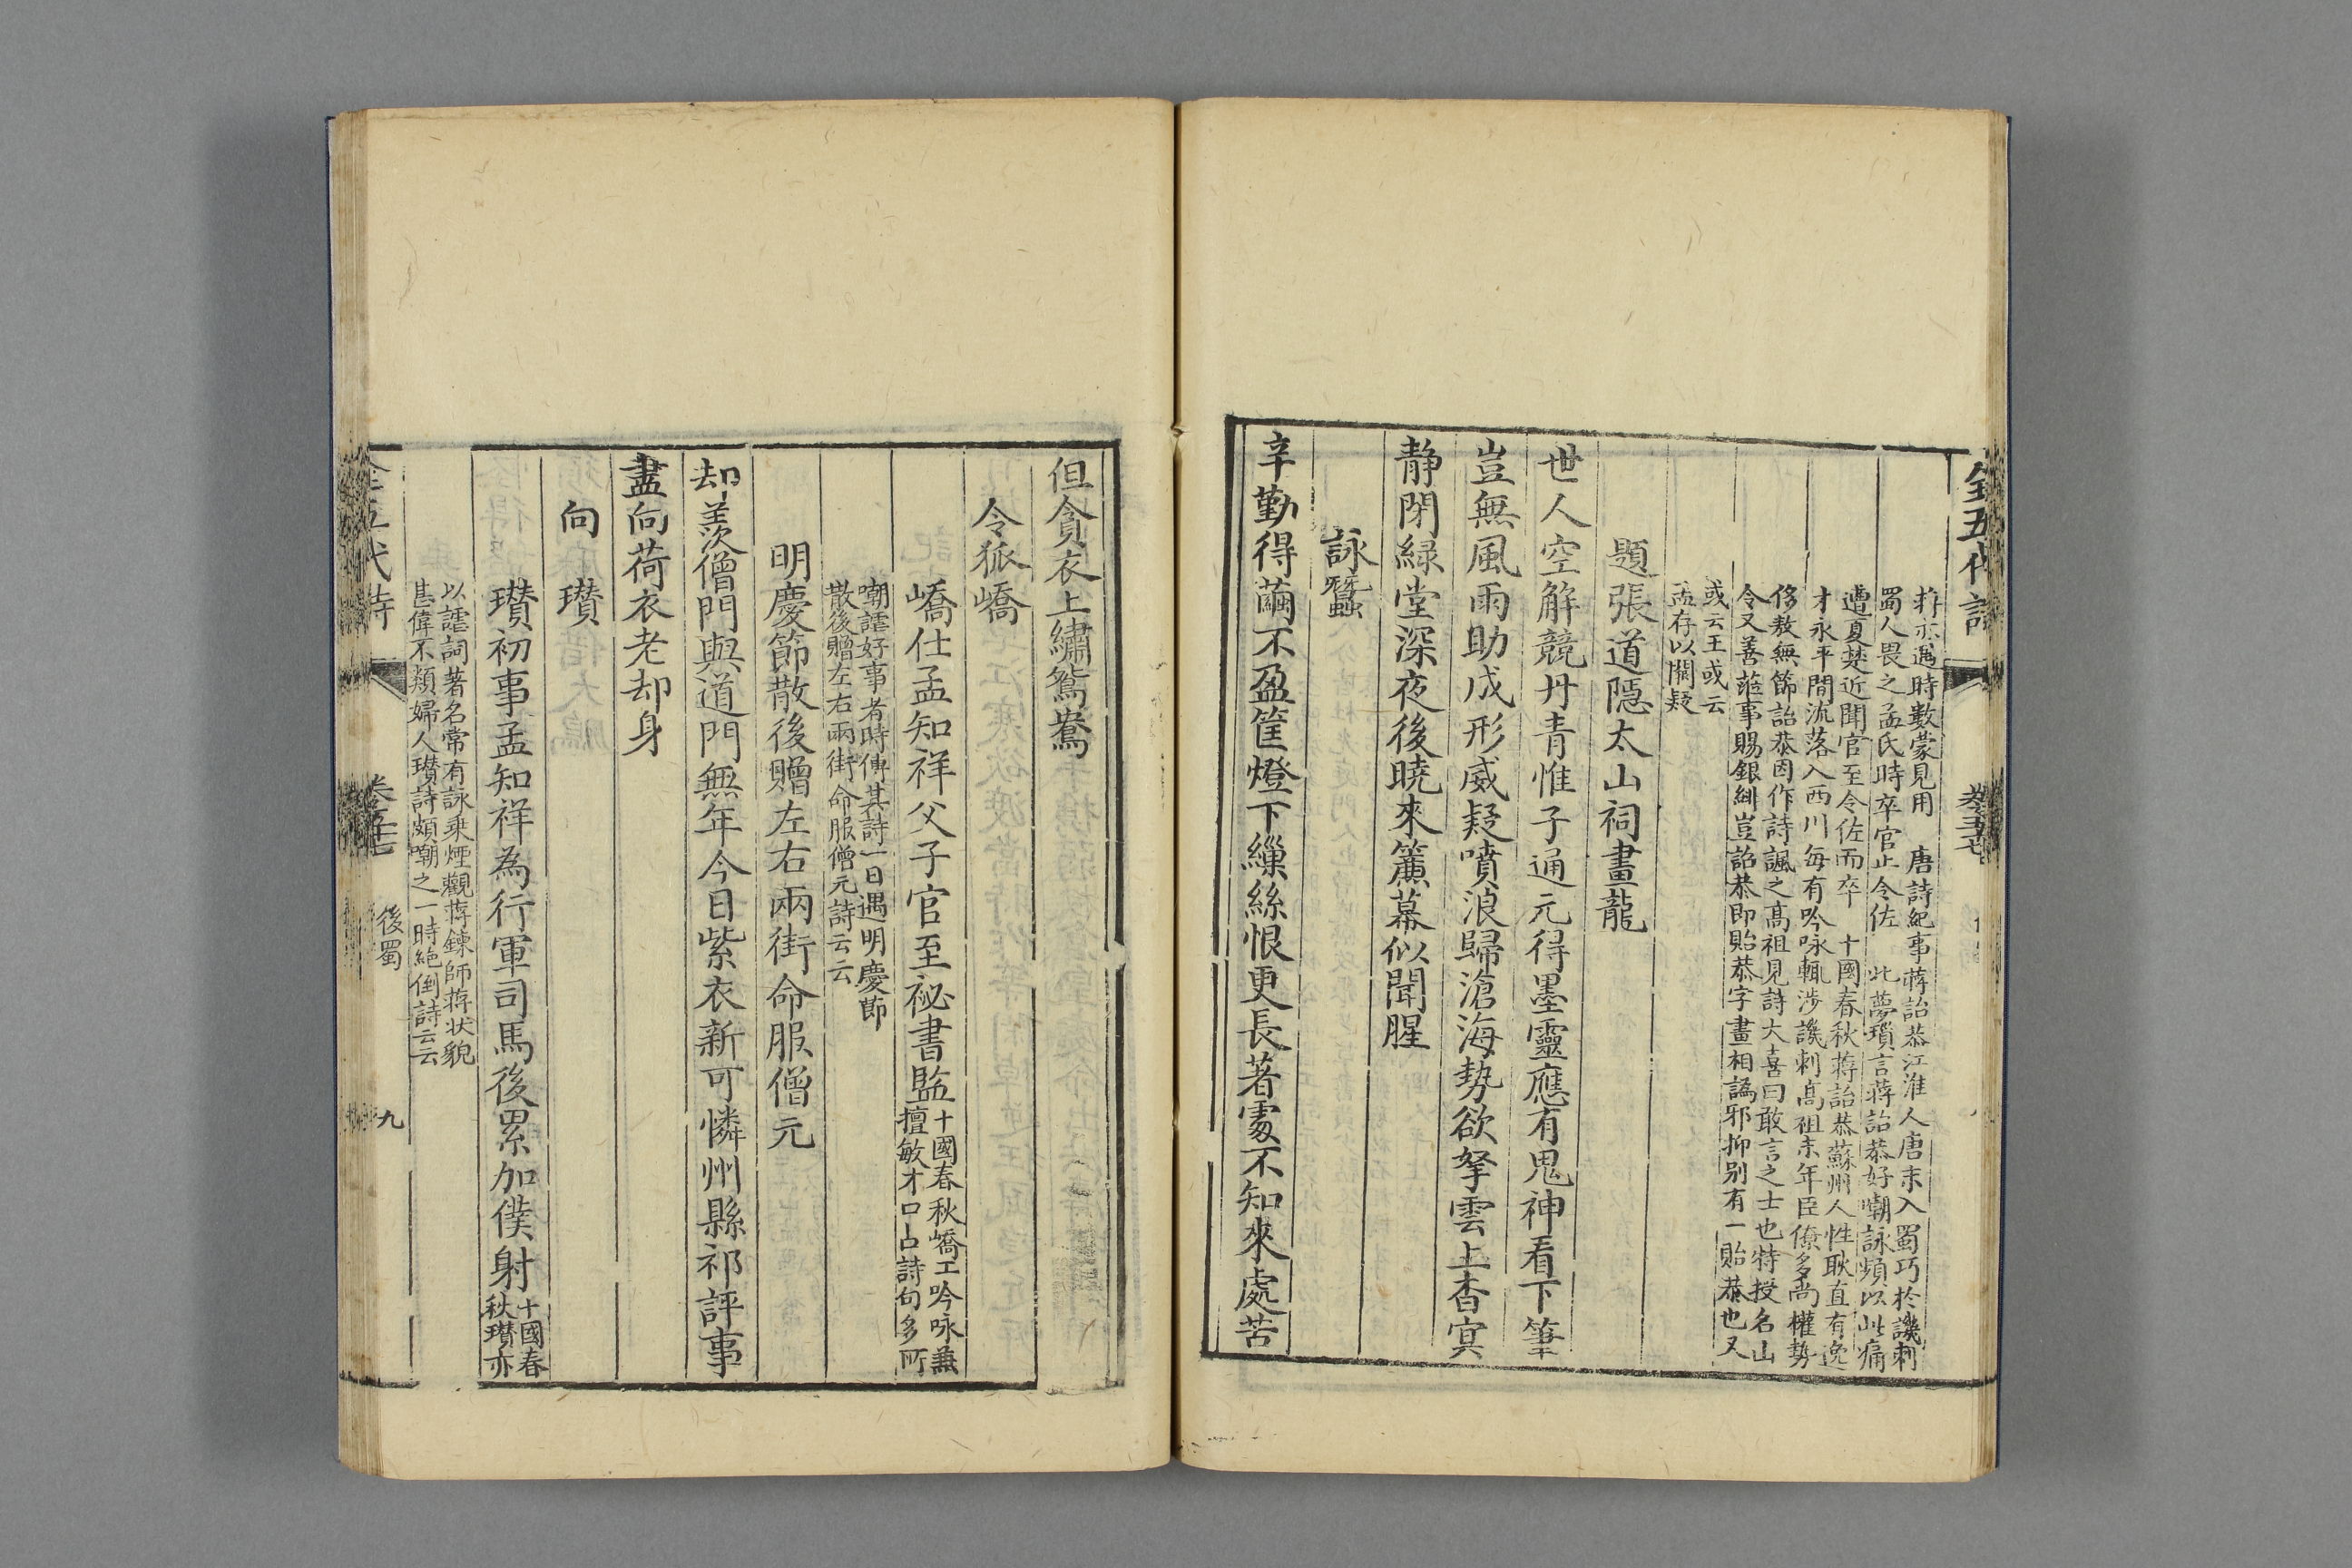 全五代詩
卷五十七
亦遇時數蒙見用　唐詩紀事蔣詒恭江淮人唐末入蜀巧於譏刺
蜀人畏之孟氏時卒官止令佐　此夢瑣言蔣詒恭好嘲詠頻以此痛
遭夏楚近聞官至令佐而卒　十國春秋蔣詒恭蘇州人性耿直有逸
才永平間流落入西川每有吟咏輒涉譏刺高祖末年臣僚多尚權勢
侈敖無節詒恭因作詩諷之高祖見詩大喜曰敢言之士也特授名山
令又善蒞事賜銀緋豈詒恭即貽恭字畫相譌邪抑別有一貽恭也又
或云王或云
孟存以闕疑
題張道隱太山祠畫龍
世人空解競丹青惟子通元得墨靈應有鬼神看下筆
豈無風雨助成形威疑噴浪歸滄海勢欲拏雲上杳㝠
静閉緑堂深夜後曉來簾幕似聞腥
詠蠶
辛勤得繭不盈筐燈下繅絲恨更長著䖏不知來處苦
但貪衣上繡鴛鴦
令狐嶠
嶠仕孟知祥父子官至祕書監
十國春秋嶠工吟咏兼
擅敏才口占詩句多所
嘲謔好事者時傳其詩一日遇明慶節
散後贈左右兩街命服僧元詩云云
明慶節散後贈左右兩街命服僧元
却羨僧門與道門無年今日紫衣新可憐州縣祁評事
盡向荷衣老却身
向瓚
瓚初事孟知祥為行軍司馬後累加僕射
十國春
秋瓚亦
以謔詞著名常有詠乘煙觀蔣鍊師蔣状貌
甚偉不類婦人瓚詩頗嘲之一時絶倒詩云云
全五代詩
卷五十七
後蜀
九